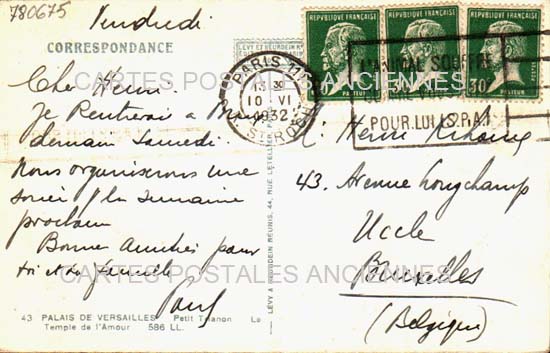 780675
Vendredi
CORRESPONDANCE
Cher Henri.
Je Rentrerai a
demain Samedi.
Nous organiserons une
soirée la semaine
prochain
Bonne amitiés pour
toi et ta famille
Paul
43 PALAIS DE VERSAILLES Petit Trianon Le
Temple de l'Amour 586 LL.
LÉVY & NEURDEIN RÉUNIS, 44, RUE LETELLIER, PARIS
PARIS
13 30
10 VI
1932
RÉPUBLIQUE FRANÇAISE RÉPUBLIQUE FRANÇAISE RÉPUBLIQUE FRANÇAISE
30 30
PASTEUR PASTEUR
L'ANIMAL SOUFFRE
POUR LUI LA S.P.A.
M. Henri
43. Avenue Longchamp
Uccle
Bruxelles
(Belgique)
CARTES POSTALES ANCIENNES
CARTES POSTALES ANCIENNES